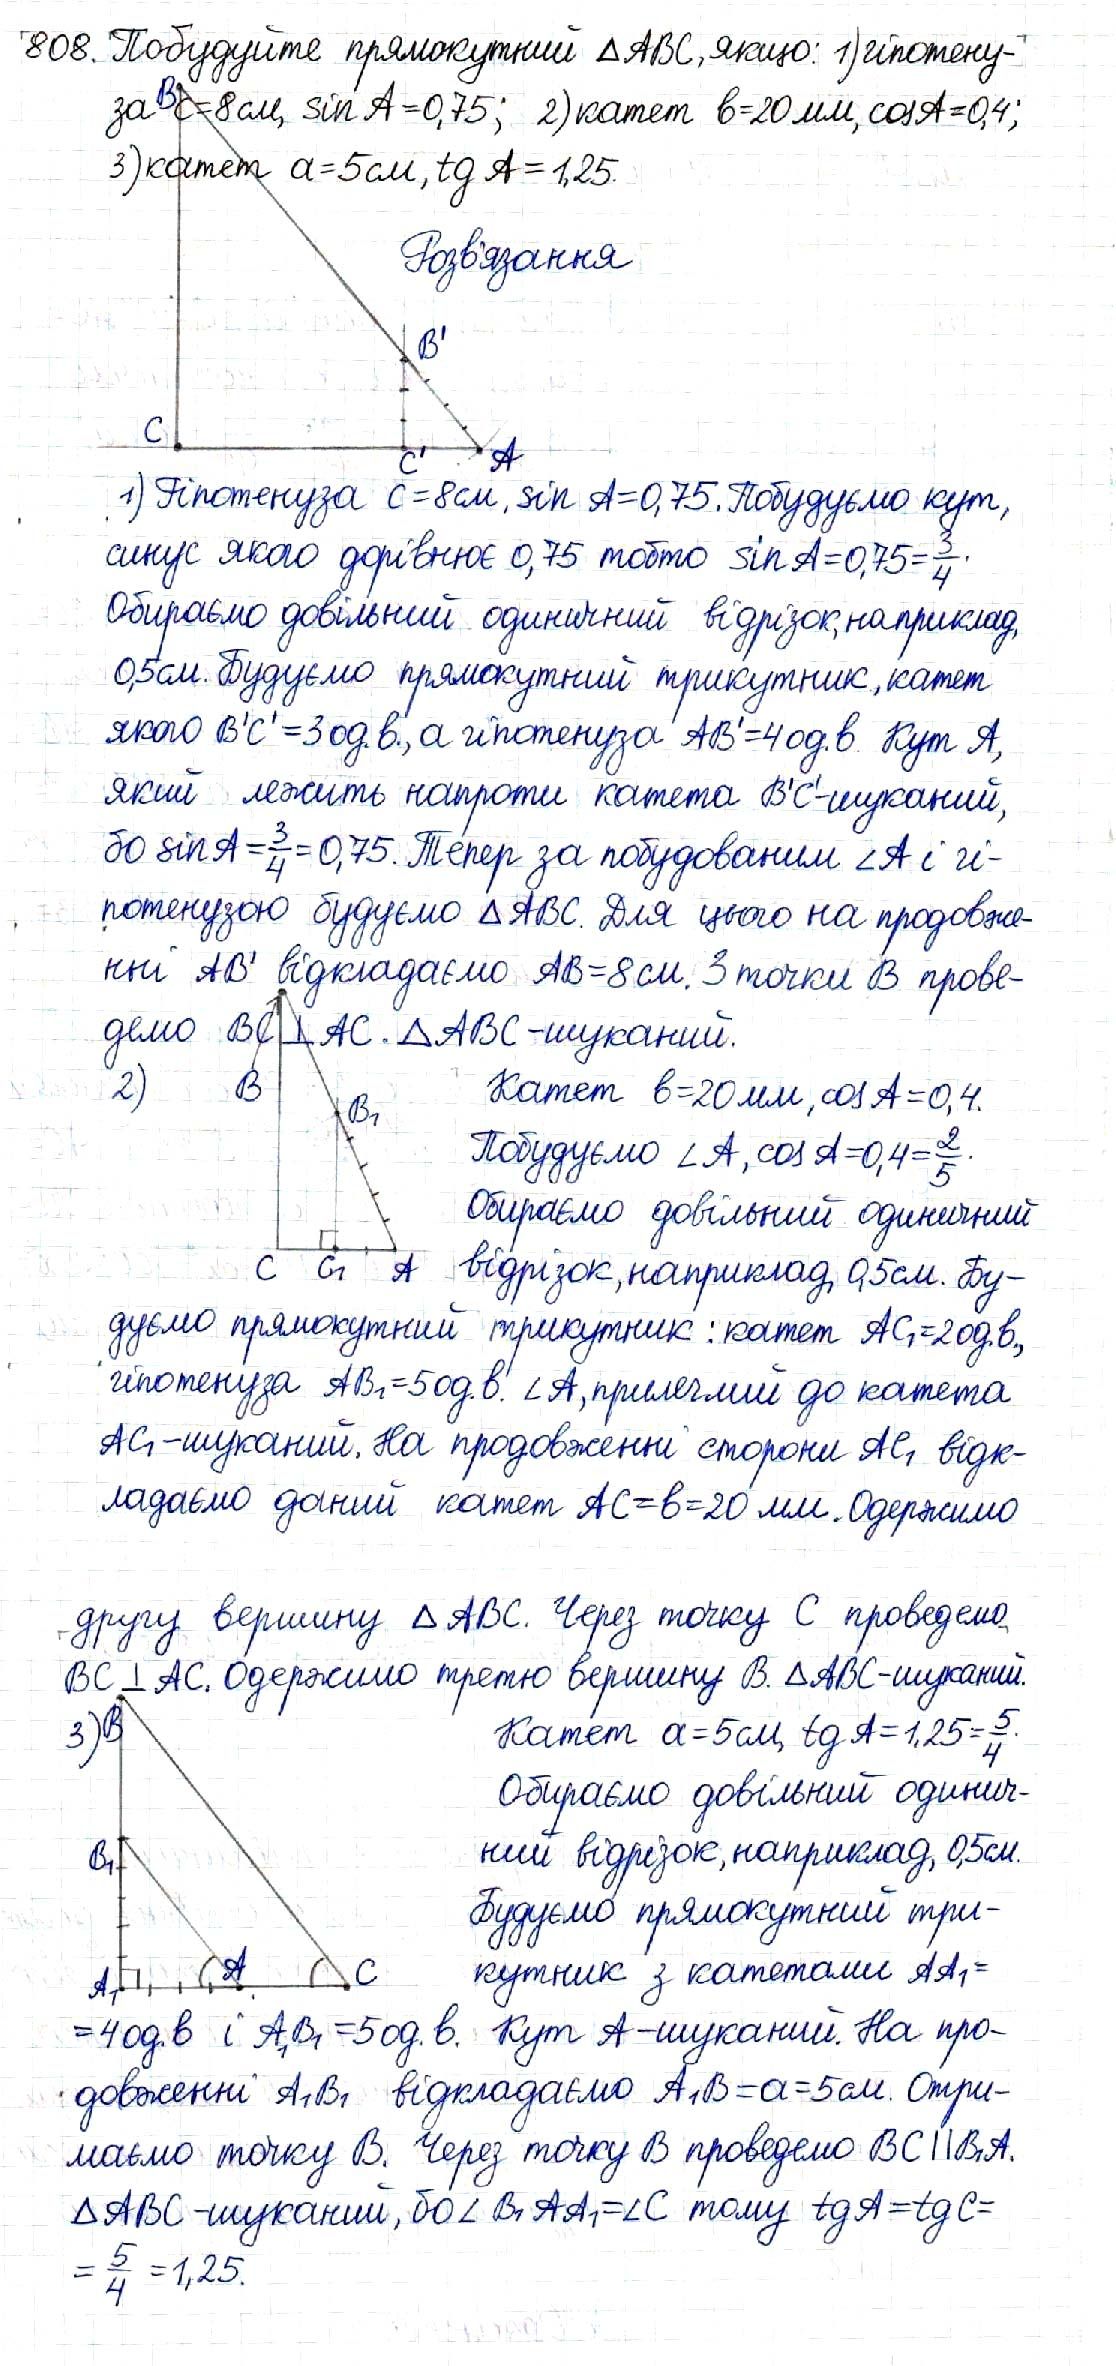 808. Побудуйте прямокутний △ABC, якщо: 1) гіпотену-
за c=8см, sin A=0,75; 2) катет b=20мм, cos A=0,4;
3) катет a=5см, tg A=1,25.
B
Розв'язання
B'
C
C'
A
1) Гіпотенуза c=8см, sin A=0,75. Побудуємо кут,
синус якого дорівнює 0,75 тобто sin A=0,75=3/4.
Обираємо довільний одиничний відрізок, наприклад,
0,5см. Будуємо прямокутний трикутник, катет
якого B'C'=3од.в., а гіпотенуза AB'=4од.в. Кут A,
який лежить напроти катета B'C'-шуканий,
бо sin A=3/4=0,75. Тепер за побудованим ∠A і гі-
потенузою будуємо △ABC. Для цього на продовже-
нні AB' відкладаємо AB=8см. З точки B прове-
демо BC⊥AC. △ABC-шуканий.
2)
B
B₁
C
C₁
A
Катет b=20мм, cos A=0,4.
Побудуємо ∠A, cos A=0,4=2/5.
Обираємо довільний одиничний
відрізок, наприклад, 0,5см. Бу-
дуємо прямокутний трикутник: катет AC₁=2од.в.,
гіпотенуза AB₁=5од.в. ∠A, прилеглий до катета
AC₁-шуканий. На продовженні сторони AC₁ відк-
ладаємо даний катет AC=b=20мм. Одержимо
другу вершину △ABC. Через точку C проведемо
BC⊥AC. Одержимо третю вершину B. △ABC-шуканий.
3)
B
B₁
A₁
A
C
Катет a=5см, tg A=1,25=5/4.
Обираємо довільний одинич-
ний відрізок, наприклад, 0,5см.
Будуємо прямокутний три-
кутник з катетами AA₁=
=4од.в і A₁B₁=5од.в. Кут A-шуканий. На про-
довженні A₁B₁ відкладаємо A₁B=a=5см. Отри-
маємо точку B. Через точку B проведемо BC||B₁A.
△ABC-шуканий, бо ∠B₁AA₁=∠C тому tg A=tg C=
=5/4=1,25.